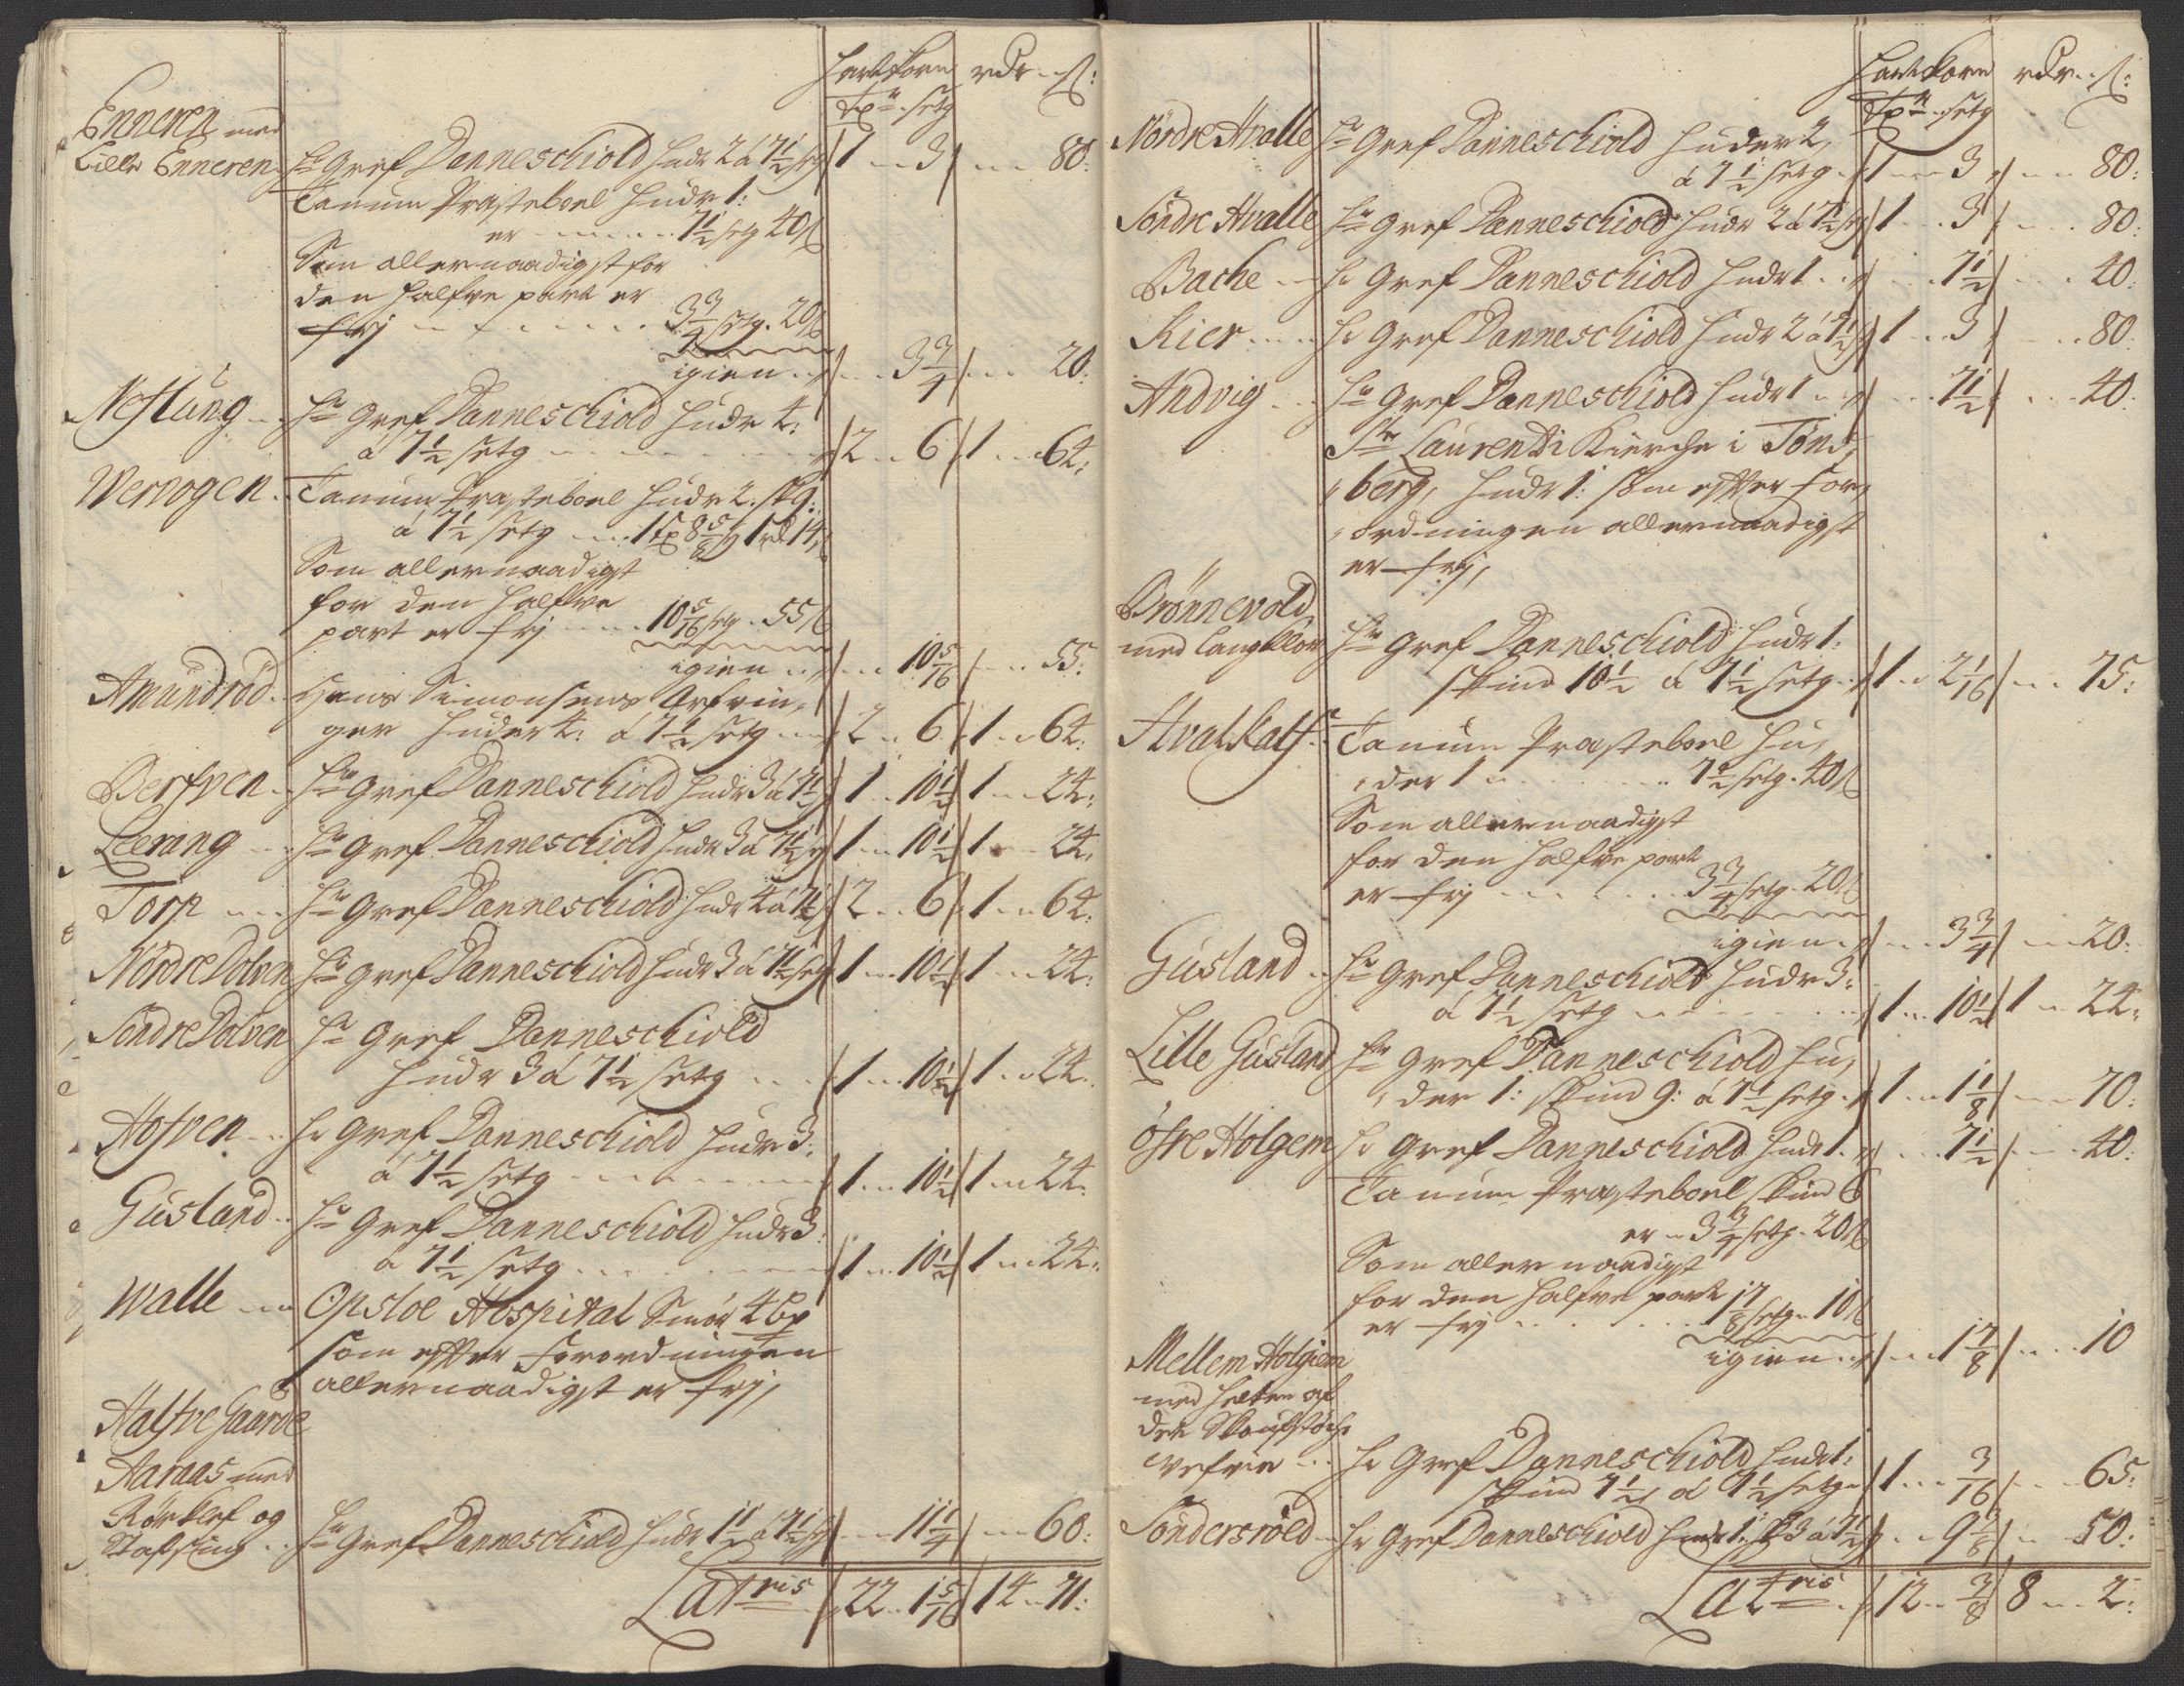 Hartkorn rdr ß:
Tpr setg
Enneren med
Lille Enneren Hr Gref Danneschiold Huder 2 á 7½ stg 1 3 80:
Tanum Præsteboel Huder 1:
er 7½ setg 40 ß
Som allernaadigst for
den halfve part er
frj 3¾ setg. 20 ß
igien 3¾ 20:
Nessling Hr Gref Danneschiold Huder 4:
á 7½ setg 2 6 1 64:
Wervogen Tanum Præsteboel Huder 2. sk 9:
á 7½ setg 1 tp 8⅝ sg 1 rd 14 ß
Som allernaadigst
for den halfve
part er frj 10 5/16 setg. 55 ß
igien 10 5/16 55:
Amundröd Hans Simonsens Arfvin,
ger Huder 4: á 7½ setg 2 6 1 64:
Berfven Hr Gref Danneschiold Huder 3 á 7½ 1 10½ 1 24:
Lerang Hr Gref Danneschiold Huder 3 á 7½ 1 10½ 1 24:
Torp Hr Gref Danneschiold Huder 4 á 7½ 2 6 1 64:
Nördre Dolven Hr Gref Danneschiold Huder 3 á 7½ setg 1 10½ 1 24:
Söndre Dolven Hr Gref Danneschiold
Huder 3 á 7½ setg 1 10½ 1 24:
Hofven Hr Gref Danneschiold Huder 3:
á 7½ setg 1 10½ 1 24:
Gusland Hr Gref Danneschiold Huder 3:
á 7½ setg 1 10½ 1 24:
Walle Opsloe Hospital Smör 4 Bp
som efter Forordningen
allernaadigst er frj,
Halfve Gaarde
Aaraas med
Rörklef og
Hr Gref Danneschiold Huder 1½ á 7½ sg 11¼ 60:
Latris 22 1 5/16 14 71:
Hartkorn rdr ß:
Tpr setg
Nördre Hvalle Hr Gref Danneschiold Huder 2,
á 7½ setg 1 3 80:
Söndre Hvalle Hr Gref Danneschiold Huder 2 á 7½ sg 1 3 80:
Bache Hr Gref Danneschiold Huder 1 7½ 40:
Kier Hr Gref Danneschiold Huder 2 á 7½ 1 3 80:
Andvig Hr Gref Danneschiold Huder 1 7½ 40:
Ste Laurenti Kierche i Töns,
berg, Huder 1: som efter For,
ordningen allernaadigst
er frj,
Brönnevold
med Hr Gref Danneschiold Huder 1:
skind 10½ á 7½ setg 1 2 1/16 75:
Hvalkalf Tanum Præsteboel Hu,
der 1 7½ setg. 40 ß
Som allernaadigst
for den halfve part
er frj 3¾ setg. 20 ß
igien 3¾ 20:
Gusland Hr Gref Danneschiold Huder 3:
á 7½ setg 1 10½ 1 24:
Lille Gusland Hr Gref Danneschiold Hu,
der 1: skind 9: á 7½ setg 1 1⅛ 70:
Öfre Holgem Hr Gref Danneschiold Huder 1. 7½ 40:
Tanum Præsteboel skind 6
er 3¾ setg. 20 ß
Som allernaadigst
for den halfve part
er frj 1⅞ setg 10 ß
igien 1⅞ 10
Mellem Holgiem
med Helten af
det
Hr Gref Danneschiold Huder 1:
skind 7½, á 7½ setg 1 3/16 65:
Sönderröed Hr Gref Danneschiold Huder 1: sk 3 á 7½ 9⅜ 50:
Latris 12 ⅜ 8 2: